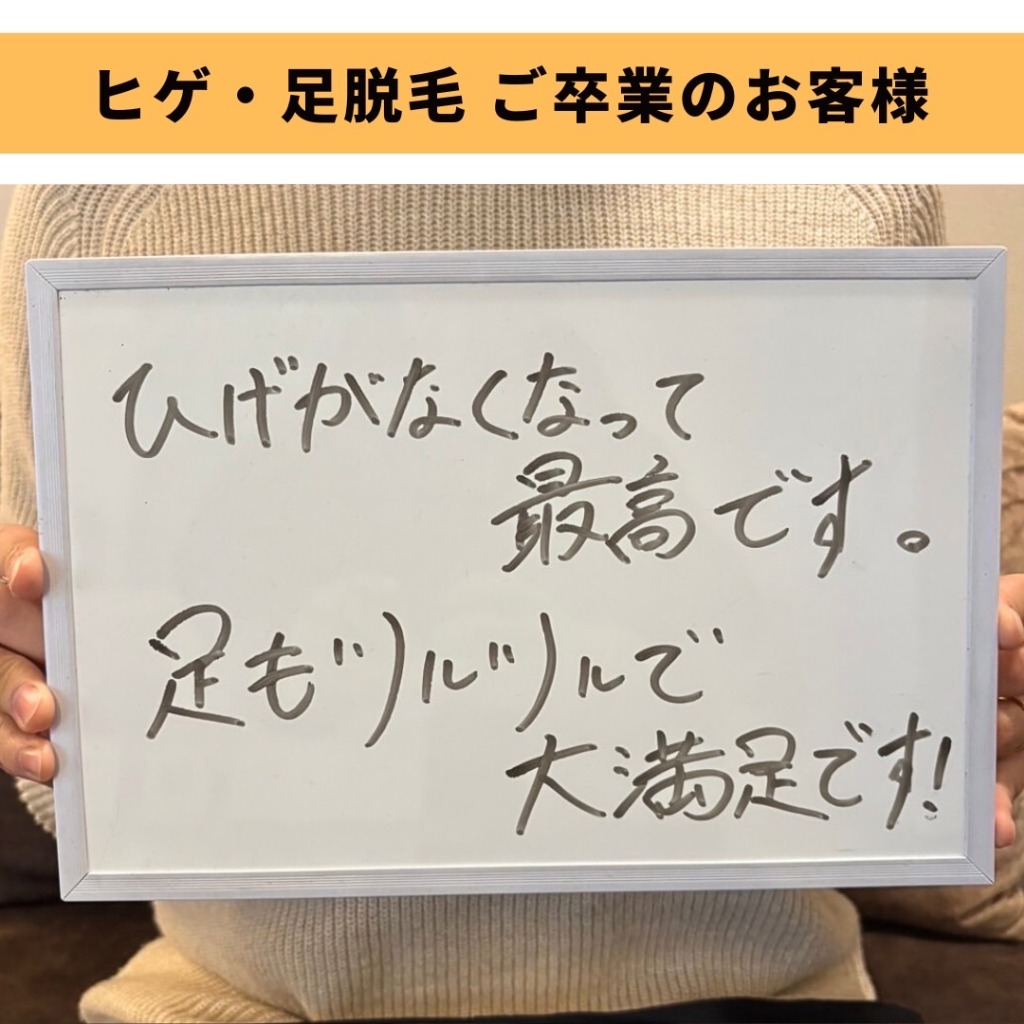 ヒゲ・足脱毛 ご卒業のお客様
ひげがなくなって
最高です。
足もツルツルで
大満足です!